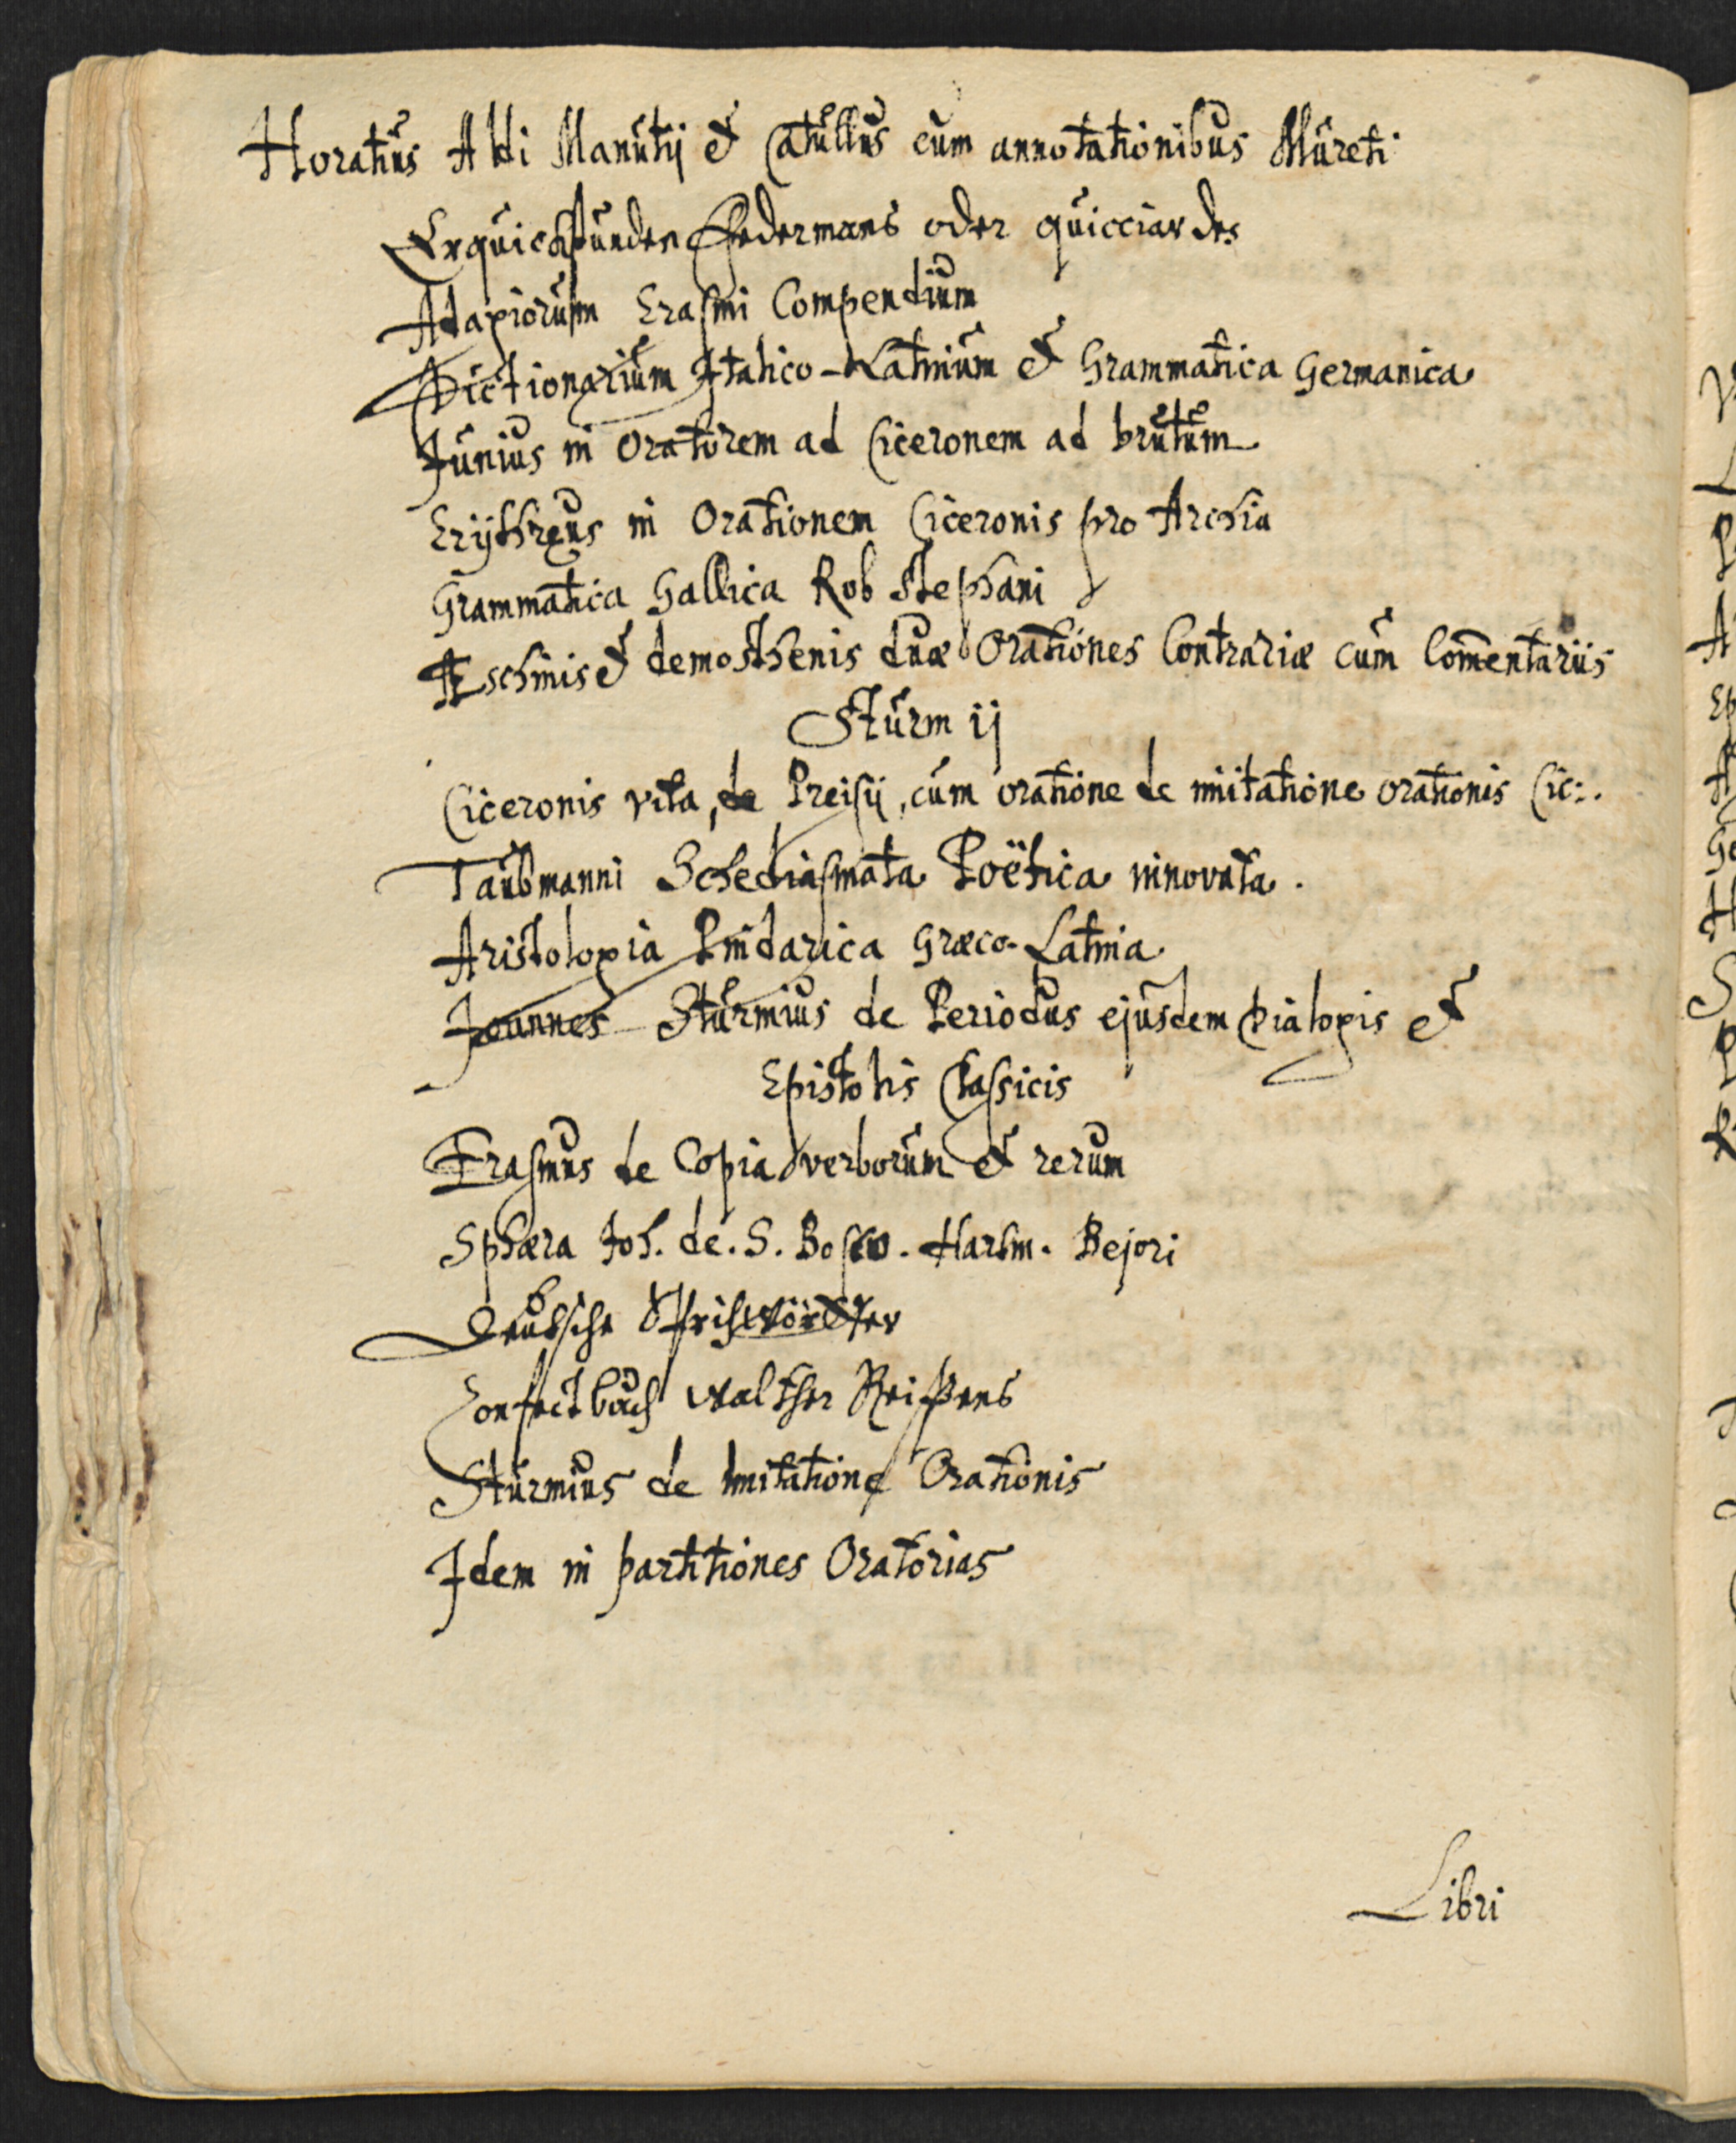 Horatius Aldi Manutij & Catullus cum annotationibus Mureti
Erquichstunden Federmans oder quicciardes
Adagiorum Erasmi Compendium
Dictionarium Italico-Latinum & Grammatica Germanica
Junius in Oratorem ad Ciceronem ad brutum
Erijthreus in Orationem Ciceronis pro Archia
Grammatica Gallica Rob Stephani
Æschinis & demosthenis duæ Orationes Contrariæ cum Com̄entariis
Sturmij
Ciceronis vita, de Preisij, cum oratione de imitatione orationis Cic:.
Taubmanni Schediasmata Poëtica innovata.
Aristologia Pindarica Græco-Latina
Joannes Sturmius de Periodus ejusdem Dialogis &
Epistolis Classicis
Erasmus de Copia verborum & rerum
Sphæra Joh. de. S. Bosco. Harbm. Bejeri
Deutsche Sprichwörtter
Confectbuch Walther Reiffens
Sturmius de Imitatione Orationis
Idem in partitiones Oratorias
Libri